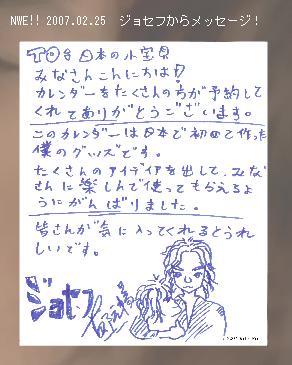 NWE!! 2007.02.25　ジョセフからメッセージ！
TO：日本の小宝貝
みなさんこんにちは!?
カレンダーをたくさんの方が予約して
くれてありがとうございます。
このカレンダーは日本で初めて作った
僕のグッズです。
たくさんのアイデイアを出して、みな
さんに楽しんで使ってもらえるよ
うにがんばりました。
皆さんが気に入ってくれるとうれ
しいです。
ジョセフ